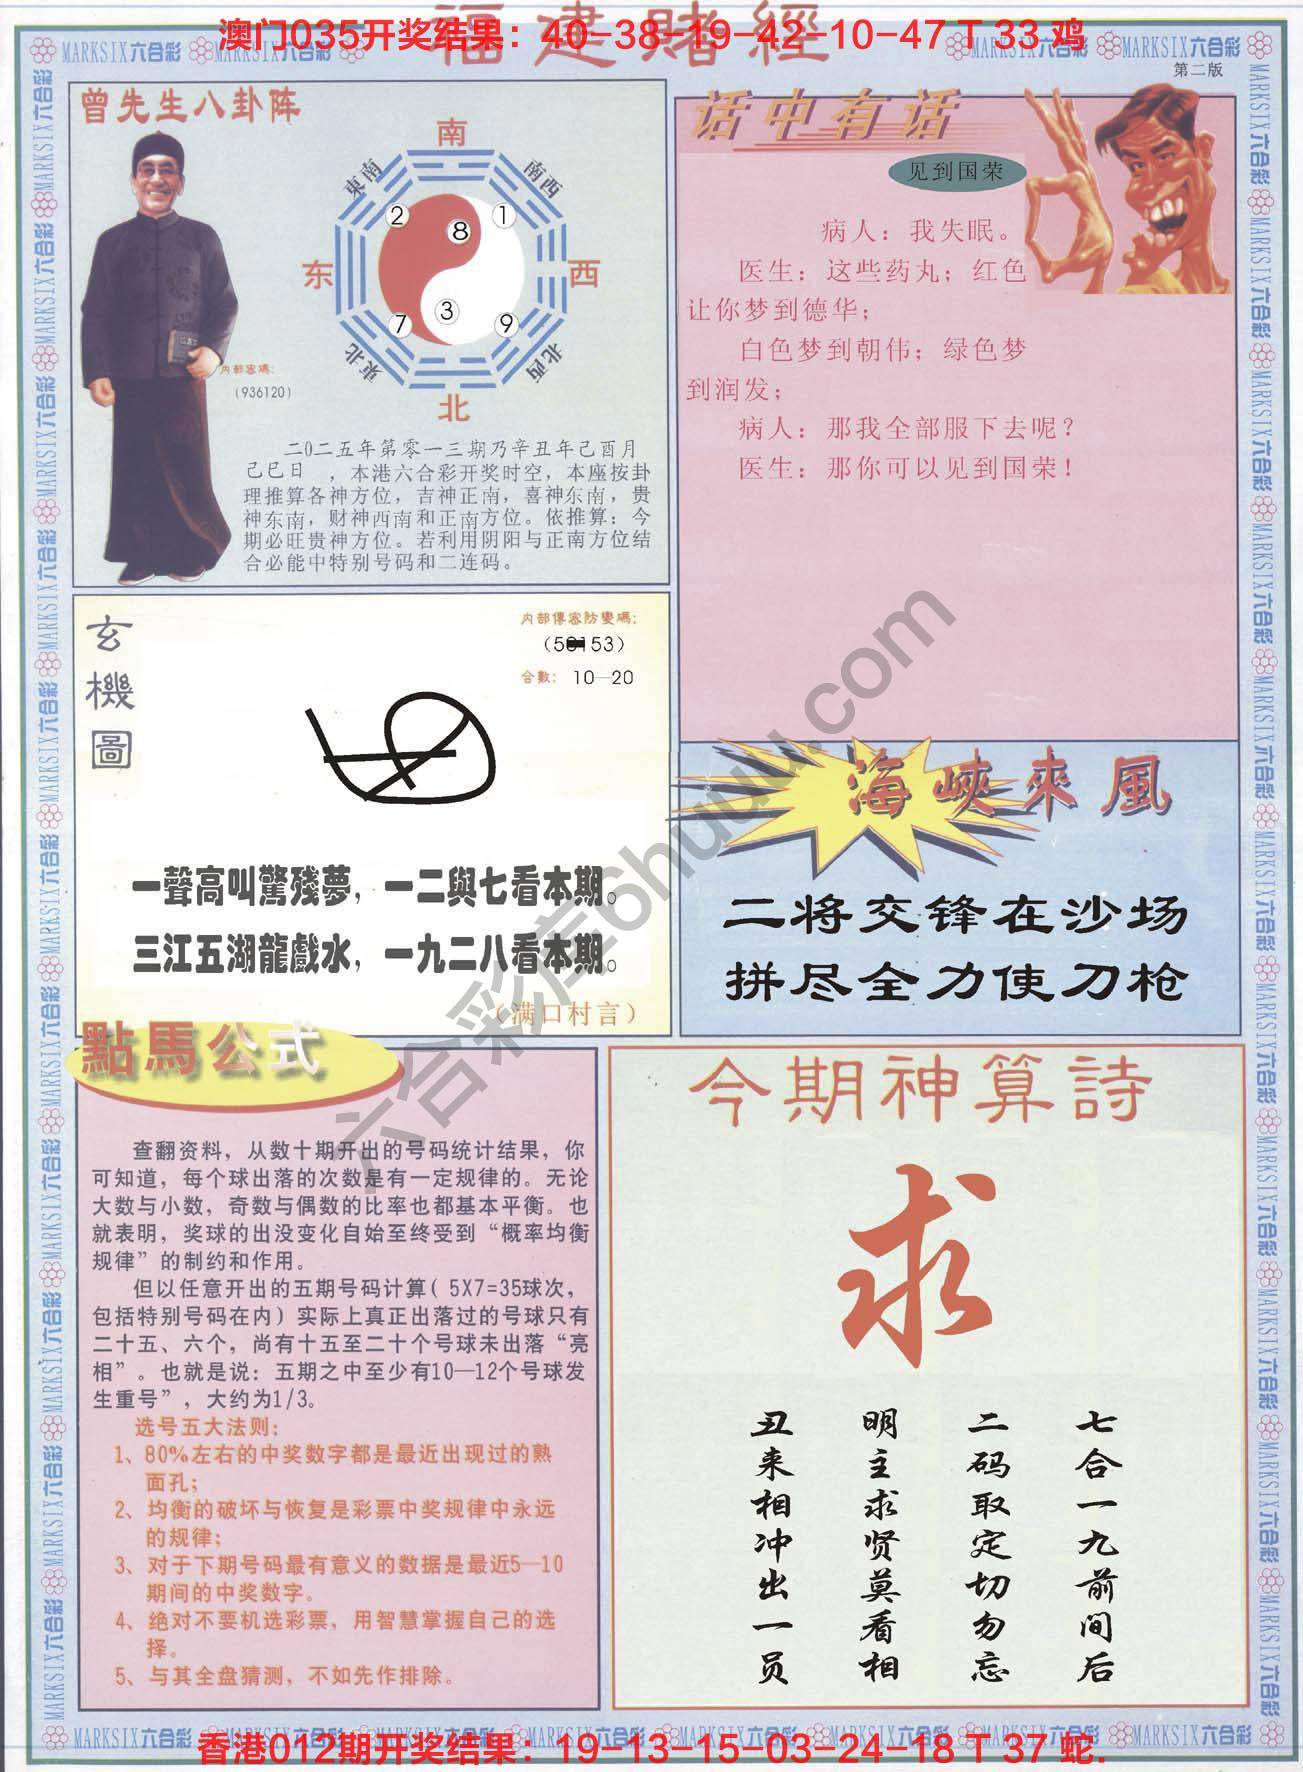 福建賭經
澳门035开奖结果：40-38-19-42-10-47 T 33 鸡
MARKSIX六合彩 MARKSIX六合彩 MARKSIX六合彩 MARKSIX六合彩
第二版
曾先生八卦阵
南
東南
南西
2
1
8
东
西
3
7
9
東北
北西
北
内部密碼：
（936120）
二0二五年第零一三期乃辛丑年己酉月
己巳日　，本港六合彩开奖时空，本座按卦
理推算各神方位，吉神正南，喜神东南，贵
神东南，财神西南和正南方位。依推算：今
期必旺贵神方位。若利用阴阳与正南方位结
合必能中特别号码和二连码。
话中有话
见到国荣
病人：我失眠。
医生：这些药丸；红色
让你梦到德华；
白色梦到朝伟；绿色梦
到润发；
病人：那我全部服下去呢？
医生：那你可以见到国荣！
玄機圖
内部傳密防變碼：
合數：10—20
一聲高叫驚殘夢，一二與七看本期。
三江五湖龍戲水，一九二八看本期。
（满口村言）
海峽來風
二将交锋在沙场
拼尽全力使刀枪
點馬公式
查翻资料，从数十期开出的号码统计结果，你
可知道，每个球出落的次数是有一定规律的。无论
大数与小数，奇数与偶数的比率也都基本平衡。也
就表明，奖球的出没变化自始至终受到“概率均衡
规律”的制约和作用。
但以任意开出的五期号码计算（5X7=35球次，
包括特别号码在内）实际上真正出落过的号球只有
二十五、六个，尚有十五至二十个号球未出落“亮
相”。也就是说：五期之中至少有10—12个号球发
生重号”，大约为1/3。
选号五大法则：
1、80%左右的中奖数字都是最近出现过的熟
面孔；
2、均衡的破坏与恢复是彩票中奖规律中永远
的规律；
3、对于下期号码最有意义的数据是最近5—10
期间的中奖数字。
4、绝对不要机选彩票，用智慧掌握自己的选
择。
5、与其全盘猜测，不如先作排除。
今期神算詩
求
七合一九前间后
二码取定切勿忘
明主求贤莫看相
丑来相冲出一员
六合彩库6huuu.com
MARKSIX六合彩 MARKSIX六合彩 MARKSIX六合彩 MARKSIX六合彩 MARKSIX六合彩 MARKSIX六合彩 MARKSIX六合彩 MARKSIX六合彩
香港012期开奖结果：19-13-15-03-24-18 T 37 蛇.